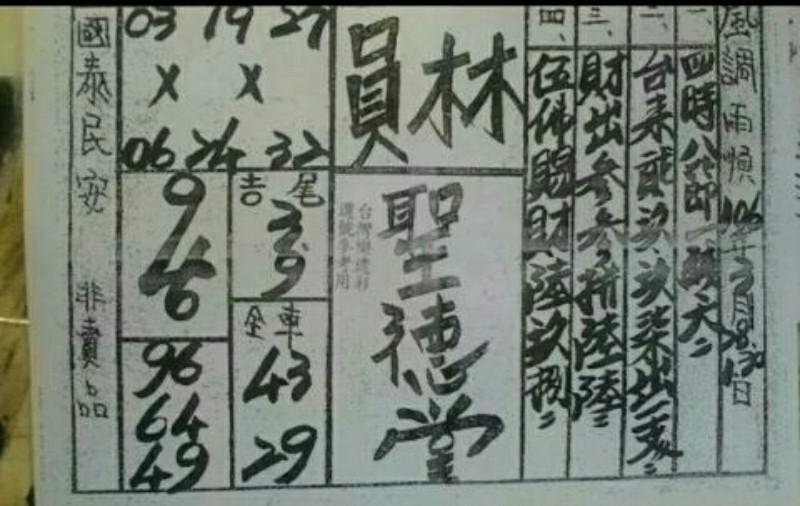 風調雨順
106年3月28.30.1.日
一、四時八節一
二、台來貳玖、玖柒出一支
三、財出參參拼陸陸
四、伍佛賜財陸玖捌
員林
聖德堂
台灣樂透彩
選號參考用
03 19 27
X X
06 24 32
吉尾
3.9
全車
43
29
9
4
6
96
64
49
國泰民安
非賣品